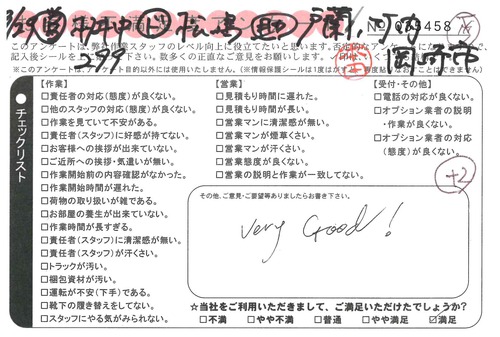 3/29 営 市中 ⊕ 松島
299
岡崎市
58
このアンケートは、弊社作業スタッフのレベル向上に役立てたいと思います。
記入後シールを
数多くの正直なご意見をお願いします。
※このアンケートは、アンケート目的以外には使用いたしません。(※情報保護シールは1度は
チェックリスト
【作業】
□責任者の対応(態度)が良くない。
□他のスタッフの対応(態度)が良くない。
□作業を見ていて不安がある。
□責任者(スタッフ)に好感が持てない。
□お客様への挨拶が出来ていない。
□ご近所への挨拶・気遣いが無い。
□作業開始前の内容確認がなかった。
□作業開始時間が遅れた。
□荷物の取り扱いが雑である。
□お部屋の養生が出来ていない。
□作業時間が長すぎる。
□責任者(スタッフ)に清潔感が無い。
□責任者(スタッフ)が汗くさい。
□トラックが汚い。
□梱包資材が汚い。
□運転が不安(下手)である。
□靴下の履き替えをしてない。
□スタッフにやる気がみられない。
【営業】
□見積もり時間に遅れた。
□見積もり時間が長い。
□営業マンに清潔感が無い。
□営業マンが煙草くさい。
□営業マンが汗くさい。
□営業態度が良くない。
□営業の説明と作業が一致してない。
【受付・その他】
□電話の対応が良くない。
□オプション業者の説明
・作業が良くない。
□オプション業者の対応
(態度)が良くない。
+2
その他、ご意見・ご要望等ありましたらお書き下さい。
Very Good!
☆当社をご利用いただきまして、ご満足いただけたでしょうか?
□不満 □やや不満 □普通 □やや満足 ☑満足